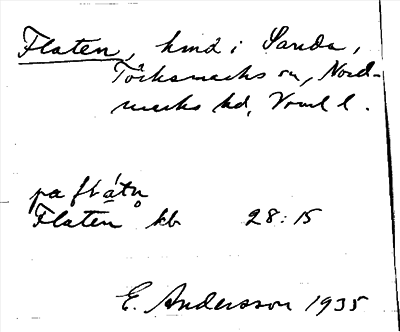 Flaten, hmd i Sanda,
Töcksmarks sn, Nord-
marks hd, Vrml l.
pa flátn
Flaten kb 28:15
E. Andersson 1935